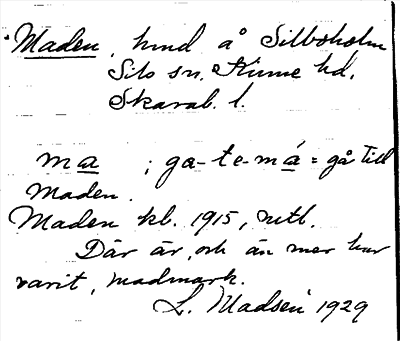 Maden, hmd å Silboholm
Sils sn, Kinne hd,
Skarab. l.
ma ; ga-te-má = gå till
Maden.
Maden kb. 1915, utl.
Där är, och än mer har
varit, madmark.
L. Madsén 1929